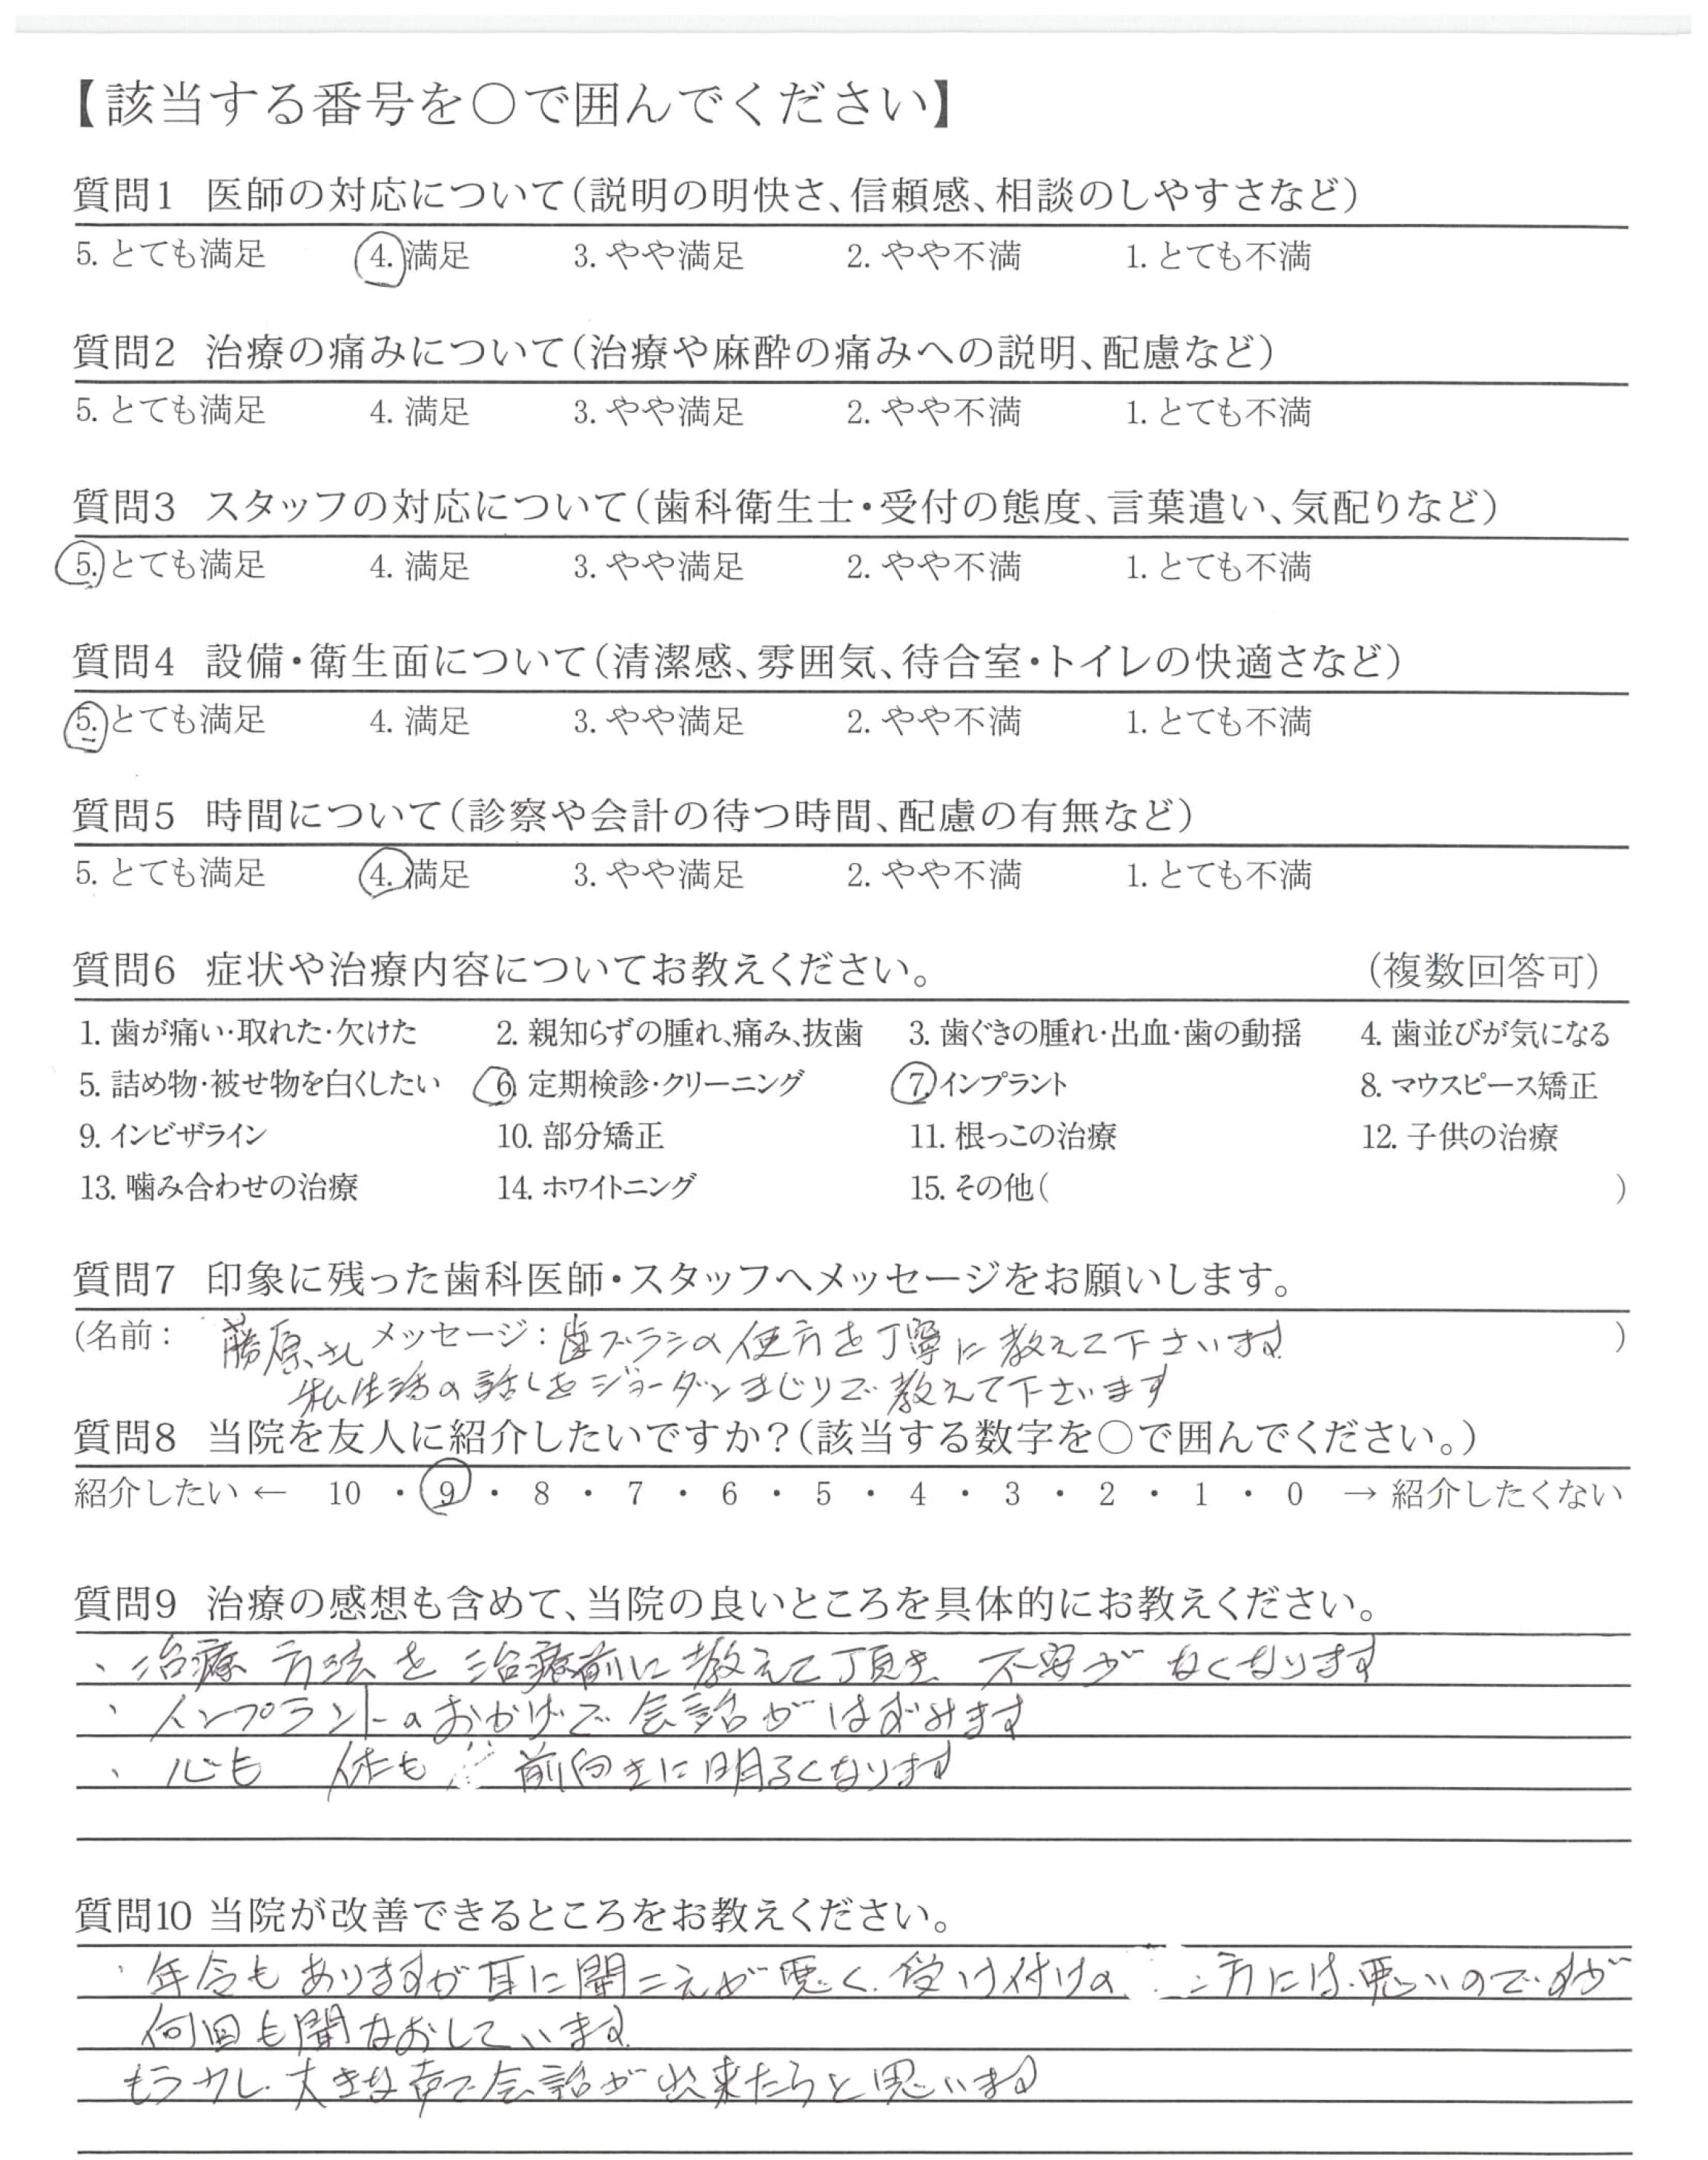 【該当する番号を○で囲んでください】
質問1 医師の対応について(説明の明快さ、信頼感、相談のしやすさなど)
5. とても満足 4. 満足 3. やや満足 2. やや不満 1. とても不満
質問2 治療の痛みについて(治療や麻酔の痛みへの説明、配慮など)
5. とても満足 4. 満足 3. やや満足 2. やや不満 1. とても不満
質問3 スタッフの対応について(歯科衛生士・受付の態度、言葉遣い、気配りなど)
5. とても満足 4. 満足 3. やや満足 2. やや不満 1. とても不満
質問4 設備・衛生面について(清潔感、雰囲気、待合室・トイレの快適さなど)
5. とても満足 4. 満足 3. やや満足 2. やや不満 1. とても不満
質問5 時間について(診察や会計の待つ時間、配慮の有無など)
5. とても満足 4. 満足 3. やや満足 2. やや不満 1. とても不満
質問6 症状や治療内容についてお教えください。 (複数回答可)
1. 歯が痛い・取れた・欠けた 2. 親知らずの腫れ、痛み、抜歯 3. 歯ぐきの腫れ・出血・歯の動揺 4. 歯並びが気になる
5. 詰め物・被せ物を白くしたい 6. 定期検診・クリーニング 7. インプラント 8. マウスピース矯正
9. インビザライン 10. 部分矯正 11. 根っこの治療 12. 子供の治療
13. 噛み合わせの治療 14. ホワイトニング 15. その他( )
質問7 印象に残った歯科医師・スタッフへメッセージをお願いします。
(名前: 藤原さん メッセージ: 歯ブラシの使方を丁寧に教えて下さいます )
私生活の話しをジョーダンまじりで教えて下さいます
質問8 当院を友人に紹介したいですか?(該当する数字を○で囲んでください。)
紹介したい ← 10 ・ 9 ・ 8 ・ 7 ・ 6 ・ 5 ・ 4 ・ 3 ・ 2 ・ 1 ・ 0 → 紹介したくない
質問9 治療の感想も含めて、当院の良いところを具体的にお教えください。
、治療方法を治療前に教えて頂き 不安がなくなります
、インプラントのおかげで会話がはずみます
、心も 体も 前向きに明るくなります
質問10 当院が改善できるところをお教えください。
、年令もありますが耳に聞こえが悪く、受け付けの 方には悪いのですが
何回も聞なおしています
もう少し大きな声で会話が出来たらと思います